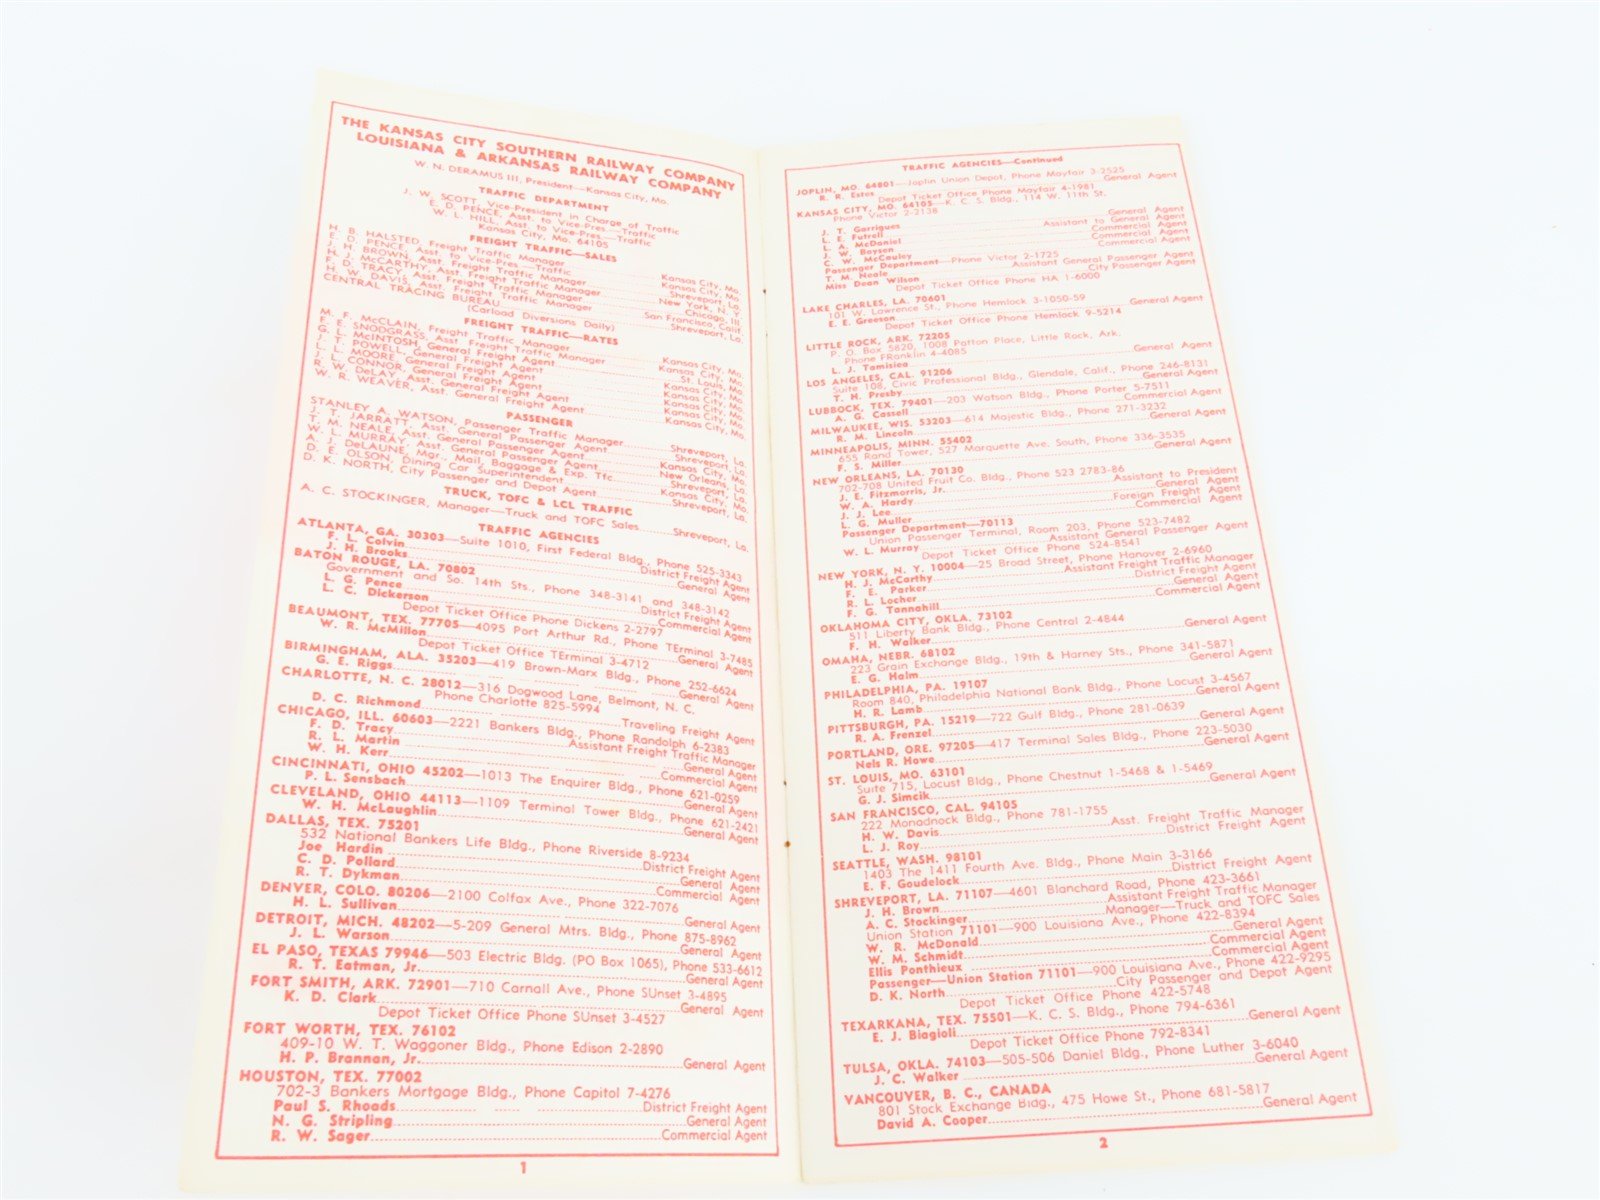 THE KANSAS CITY SOUTHERN RAILWAY COMPANY
LOUISIANA & ARKANSAS RAILWAY COMPANY
W. N. DERAMUS III, President—Kansas City, Mo.
TRAFFIC DEPARTMENT
J. W. SCOTT, Vice-President in Charge of Traffic
E. D. PENCE, Asst. to Vice-Pres.—Traffic
W. L. HILL, Asst. to Vice-Pres.—Traffic
Kansas City, Mo. 64105
FREIGHT TRAFFIC—SALES
H. B. HALSTED, Freight Traffic Manager Kansas City, Mo.
E. D. PENCE, Asst. to Vice-Pres.—Traffic Kansas City, Mo.
J. H. BROWN, Asst. Freight Traffic Manager Shreveport, La.
H. J. McCARTHY, Asst. Freight Traffic Manager New York, N. Y.
F. D. TRACY, Asst. Freight Traffic Manager Chicago, Ill.
H. W. DAVIS, Asst. Freight Traffic Manager San Francisco, Calif.
CENTRAL TRACING BUREAU Shreveport, La.
(Carload Diversions Daily)
FREIGHT TRAFFIC—RATES
M. F. McCLAIN, Freight Traffic Manager Kansas City, Mo.
E. E. SNODGRASS, Asst. Freight Traffic Manager Kansas City, Mo.
G. L. McINTOSH, General Freight Agent St. Louis, Mo.
J. T. POWELL, General Freight Agent Kansas City, Mo.
L. L. MOORE, General Freight Agent Kansas City, Mo.
J. L. CONNOR, General Freight Agent Kansas City, Mo.
R. W. DeLAY, Asst. General Freight Agent Kansas City, Mo.
W. R. WEAVER, Asst. General Freight Agent Kansas City, Mo.
PASSENGER
STANLEY A. WATSON, Passenger Traffic Manager Shreveport, La.
J. T. JARRATT, Asst. General Passenger Agent Shreveport, La.
T. M. NEALE, Asst. General Passenger Agent Kansas City, Mo.
W. L. MURRAY, Asst. General Passenger Agent New Orleans, La.
A. J. DeLAUNE, Mgr., Mail, Baggage & Exp. Tfc. Shreveport, La.
D. E. OLSON, Dining Car Superintendent Kansas City, Mo.
D. K. NORTH, City Passenger and Depot Agent Shreveport, La.
TRUCK, TOFC & LCL TRAFFIC
A. C. STOCKINGER, Manager—Truck and TOFC Sales Shreveport, La.
TRAFFIC AGENCIES
ATLANTA, GA. 30303—Suite 1010, First Federal Bldg., Phone 525-3343
F. L. Colvin District Freight Agent
J. H. Brooks General Agent
BATON ROUGE, LA. 70802
Government and So. 14th Sts., Phone 348-3141 and 348-3142
L. G. Pence District Freight Agent
L. C. Dickerson Commercial Agent
Depot Ticket Office Phone Dickens 2-2797
BEAUMONT, TEX. 77705—4095 Port Arthur Rd., Phone TErminal 3-7485
W. R. McMillon General Agent
Depot Ticket Office TErminal 3-4712
BIRMINGHAM, ALA. 35203—419 Brown-Marx Bldg., Phone 252-6624
G. E. Riggs General Agent
CHARLOTTE, N. C. 28012—316 Dogwood Lane, Belmont, N. C.
Phone Charlotte 825-5994
D. C. Richmond Traveling Freight Agent
CHICAGO, ILL. 60603—2221 Bankers Bldg., Phone Randolph 6-2383
F. D. Tracy Assistant Freight Traffic Manager
R. L. Martin General Agent
W. H. Kerr Commercial Agent
CINCINNATI, OHIO 45202—1013 The Enquirer Bldg., Phone 621-0259
P. L. Sensbach General Agent
CLEVELAND, OHIO 44113—1109 Terminal Tower Bldg., Phone 621-2421
W. H. McLaughlin General Agent
DALLAS, TEX. 75201
532 National Bankers Life Bldg., Phone Riverside 8-9234
Joe Hardin District Freight Agent
C. D. Pollard General Agent
R. T. Dykman Commercial Agent
DENVER, COLO. 80206—2100 Colfax Ave., Phone 322-7076
H. L. Sullivan General Agent
DETROIT, MICH. 48202—5-209 General Mtrs. Bldg., Phone 875-8962
J. L. Warson General Agent
EL PASO, TEXAS 79946—503 Electric Bldg. (PO Box 1065), Phone 533-6612
R. T. Eatman, Jr. General Agent
FORT SMITH, ARK. 72901—710 Carnall Ave., Phone SUnset 3-4895
K. D. Clark General Agent
Depot Ticket Office Phone SUnset 3-4527
FORT WORTH, TEX. 76102
409-10 W. T. Waggoner Bldg., Phone Edison 2-2890
H. P. Brannan, Jr. General Agent
HOUSTON, TEX. 77002
702-3 Bankers Mortgage Bldg., Phone Capitol 7-4276
Paul S. Rhoads District Freight Agent
N. G. Stripling General Agent
R. W. Sager Commercial Agent
1
TRAFFIC AGENCIES—Continued
JOPLIN, MO. 64801—Joplin Union Depot, Phone Mayfair 3 2525
R. R. Estes General Agent
Depot Ticket Office Phone Mayfair 4-1981
KANSAS CITY, MO. 64105—K. C. S. Bldg., 114 W. 11th St.
Phone Victor 2-2138
J. T. Garrigues General Agent
L. E. Futrell Assistant to General Agent
L. A. McDaniel Commercial Agent
J. W. Boysen Commercial Agent
C. W. McCauley Commercial Agent
Passenger Department—Phone Victor 2-1725
T. M. Neale Assistant General Passenger Agent
Miss Dean Wilson City Passenger Agent
Depot Ticket Office Phone HA 1-6000
LAKE CHARLES, LA. 70601
101 W. Lawrence St., Phone Hemlock 3-1050-59
E. E. Greeson General Agent
Depot Ticket Office Phone Hemlock 9-5214
LITTLE ROCK, ARK. 72205
P. O. Box 5620, 1008 Patton Place, Little Rock, Ark.
Phone FRanklin 4-4085
L. J. Tamisiea General Agent
LOS ANGELES, CAL. 91206
Suite 108, Civic Professional Bldg., Glendale, Calif., Phone 246-8131
T. H. Presby General Agent
LUBBOCK, TEX. 79401—203 Watson Bldg., Phone Porter 5-7511
A. G. Cassell Commercial Agent
MILWAUKEE, WIS. 53203—614 Majestic Bldg., Phone 271-3232
R. M. Lincoln General Agent
MINNEAPOLIS, MINN. 55402
655 Rand Tower, 527 Marquette Ave. South, Phone 336-3535
F. S. Miller General Agent
NEW ORLEANS, LA. 70130
702-708 United Fruit Co. Bldg., Phone 523 2783-86
J. E. Fitzmorris, Jr. Assistant to President
W. A. Hardy General Agent
J. J. Lee Foreign Freight Agent
L. G. Muller Commercial Agent
Passenger Department—70113
Union Passenger Terminal, Room 203, Phone 523-7482
W. L. Murray Assistant General Passenger Agent
Depot Ticket Office Phone 524-8541
NEW YORK, N. Y. 10004—25 Broad Street, Phone Hanover 2-6960
H. J. McCarthy Assistant Freight Traffic Manager
F. E. Parker District Freight Agent
R. L. Locher General Agent
F. G. Tannahill Commercial Agent
OKLAHOMA CITY, OKLA. 73102
511 Liberty Bank Bldg., Phone Central 2-4844
F. H. Walker General Agent
OMAHA, NEBR. 68102
223 Grain Exchange Bldg., 19th & Harney Sts., Phone 341-5871
E. G. Halm General Agent
PHILADELPHIA, PA. 19107
Room 840, Philadelphia National Bank Bldg., Phone Locust 3-4567
H. R. Lamb General Agent
PITTSBURGH, PA. 15219—722 Gulf Bldg., Phone 281-0639
R. A. Frenzel General Agent
PORTLAND, ORE. 97205—417 Terminal Sales Bldg., Phone 223-5030
Nels R. Howe General Agent
ST. LOUIS, MO. 63101
Suite 715, Locust Bldg., Phone Chestnut 1-5468 & 1-5469
G. J. Simcik General Agent
SAN FRANCISCO, CAL. 94105
222 Monadnock Bldg., Phone 781-1755
H. W. Davis Asst. Freight Traffic Manager
L. J. Roy District Freight Agent
SEATTLE, WASH. 98101
1403 The 1411 Fourth Ave. Bldg., Phone Main 3-3166
E. F. Goudelock District Freight Agent
SHREVEPORT, LA. 71107—4601 Blanchard Road, Phone 423-3661
J. H. Brown Assistant Freight Traffic Manager
A. C. Stockinger Manager—Truck and TOFC Sales
Union Station 71101—900 Louisiana Ave., Phone 422-8394
W. R. McDonald General Agent
W. M. Schmidt Commercial Agent
Ellis Ponthieux Commercial Agent
Passenger—Union Station 71101—900 Louisiana Ave., Phone 422-9295
D. K. North City Passenger and Depot Agent
Depot Ticket Office Phone 422-5748
TEXARKANA, TEX. 75501—K. C. S. Bldg., Phone 794-6361
E. J. Biagioli General Agent
Depot Ticket Office Phone 792-8341
TULSA, OKLA. 74103—505-506 Daniel Bldg., Phone Luther 3-6040
J. C. Walker General Agent
VANCOUVER, B. C., CANADA
801 Stock Exchange Bldg., 475 Howe St., Phone 681-5817
David A. Cooper General Agent
2